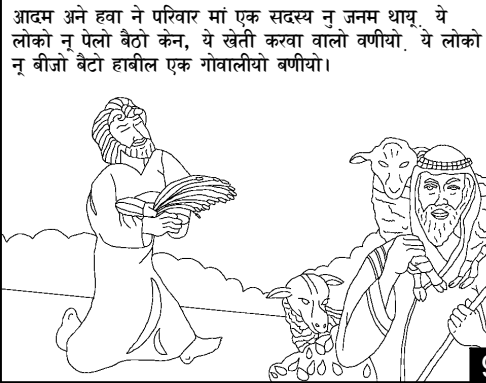 आदम अने हवा ने परिवार मां एक सदस्य नु जनम थायू. ये
लोको नू पेलो बैठो केन, ये खेती करवा वालो वणीयो. ये लोको
नू बीजो बैटो हाबील एक गोवालीयो बणीयो।
9